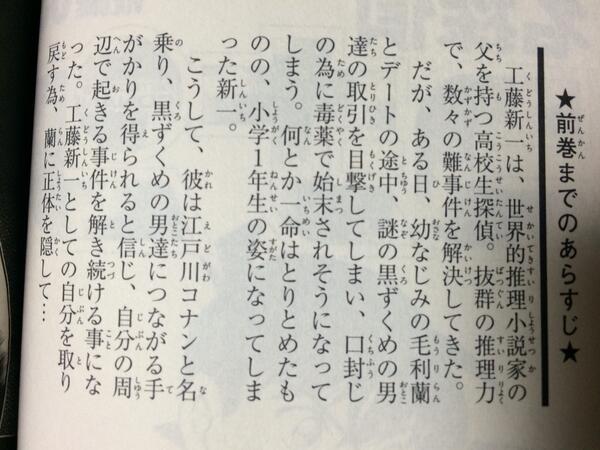 ★前巻までのあらすじ★
工藤新一は、世界的推理小説家の
父を持つ高校生探偵。抜群の推理力
で、数々の難事件を解決してきた。
だが、ある日、幼なじみの毛利蘭
とデートの途中、謎の黒ずくめの男
達の取引を目撃してしまい、口封じ
の為に毒薬で始末されそうになって
しまう。何とか一命はとりとめたも
のの、小学1年生の姿になってしま
った新一。
こうして、彼は江戸川コナンと名
乗り、黒ずくめの男達につながる手
がかりを得られると信じ、自分の周
辺で起きる事件を解き続ける事にな
った。工藤新一としての自分を取り
戻す為、蘭に正体を隠して…